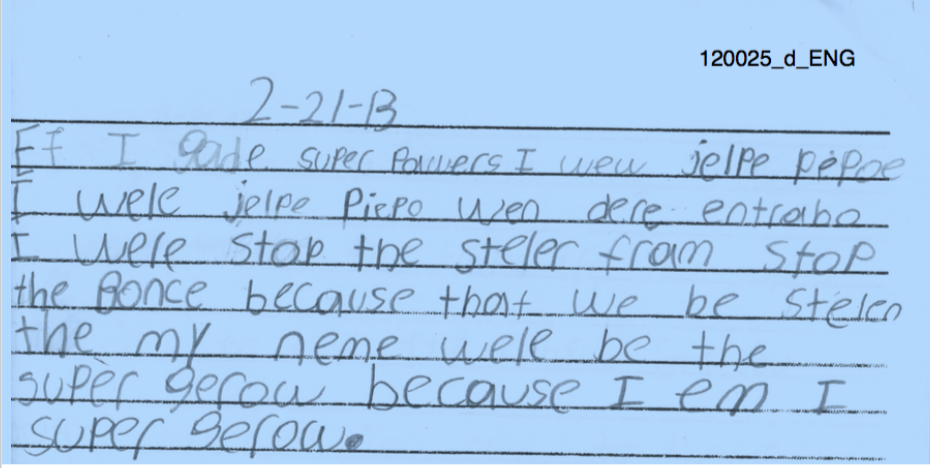 120025_d_ENG
2-21-13
Ef I gade super Powers I weu jelpe pepoe
I wele jelpe Piepo wen dere entrabo
I wele stop the steler fram stop
the Bonce because that we be stelen
the my neme wele be the
super gerow because I em I
super gerow.